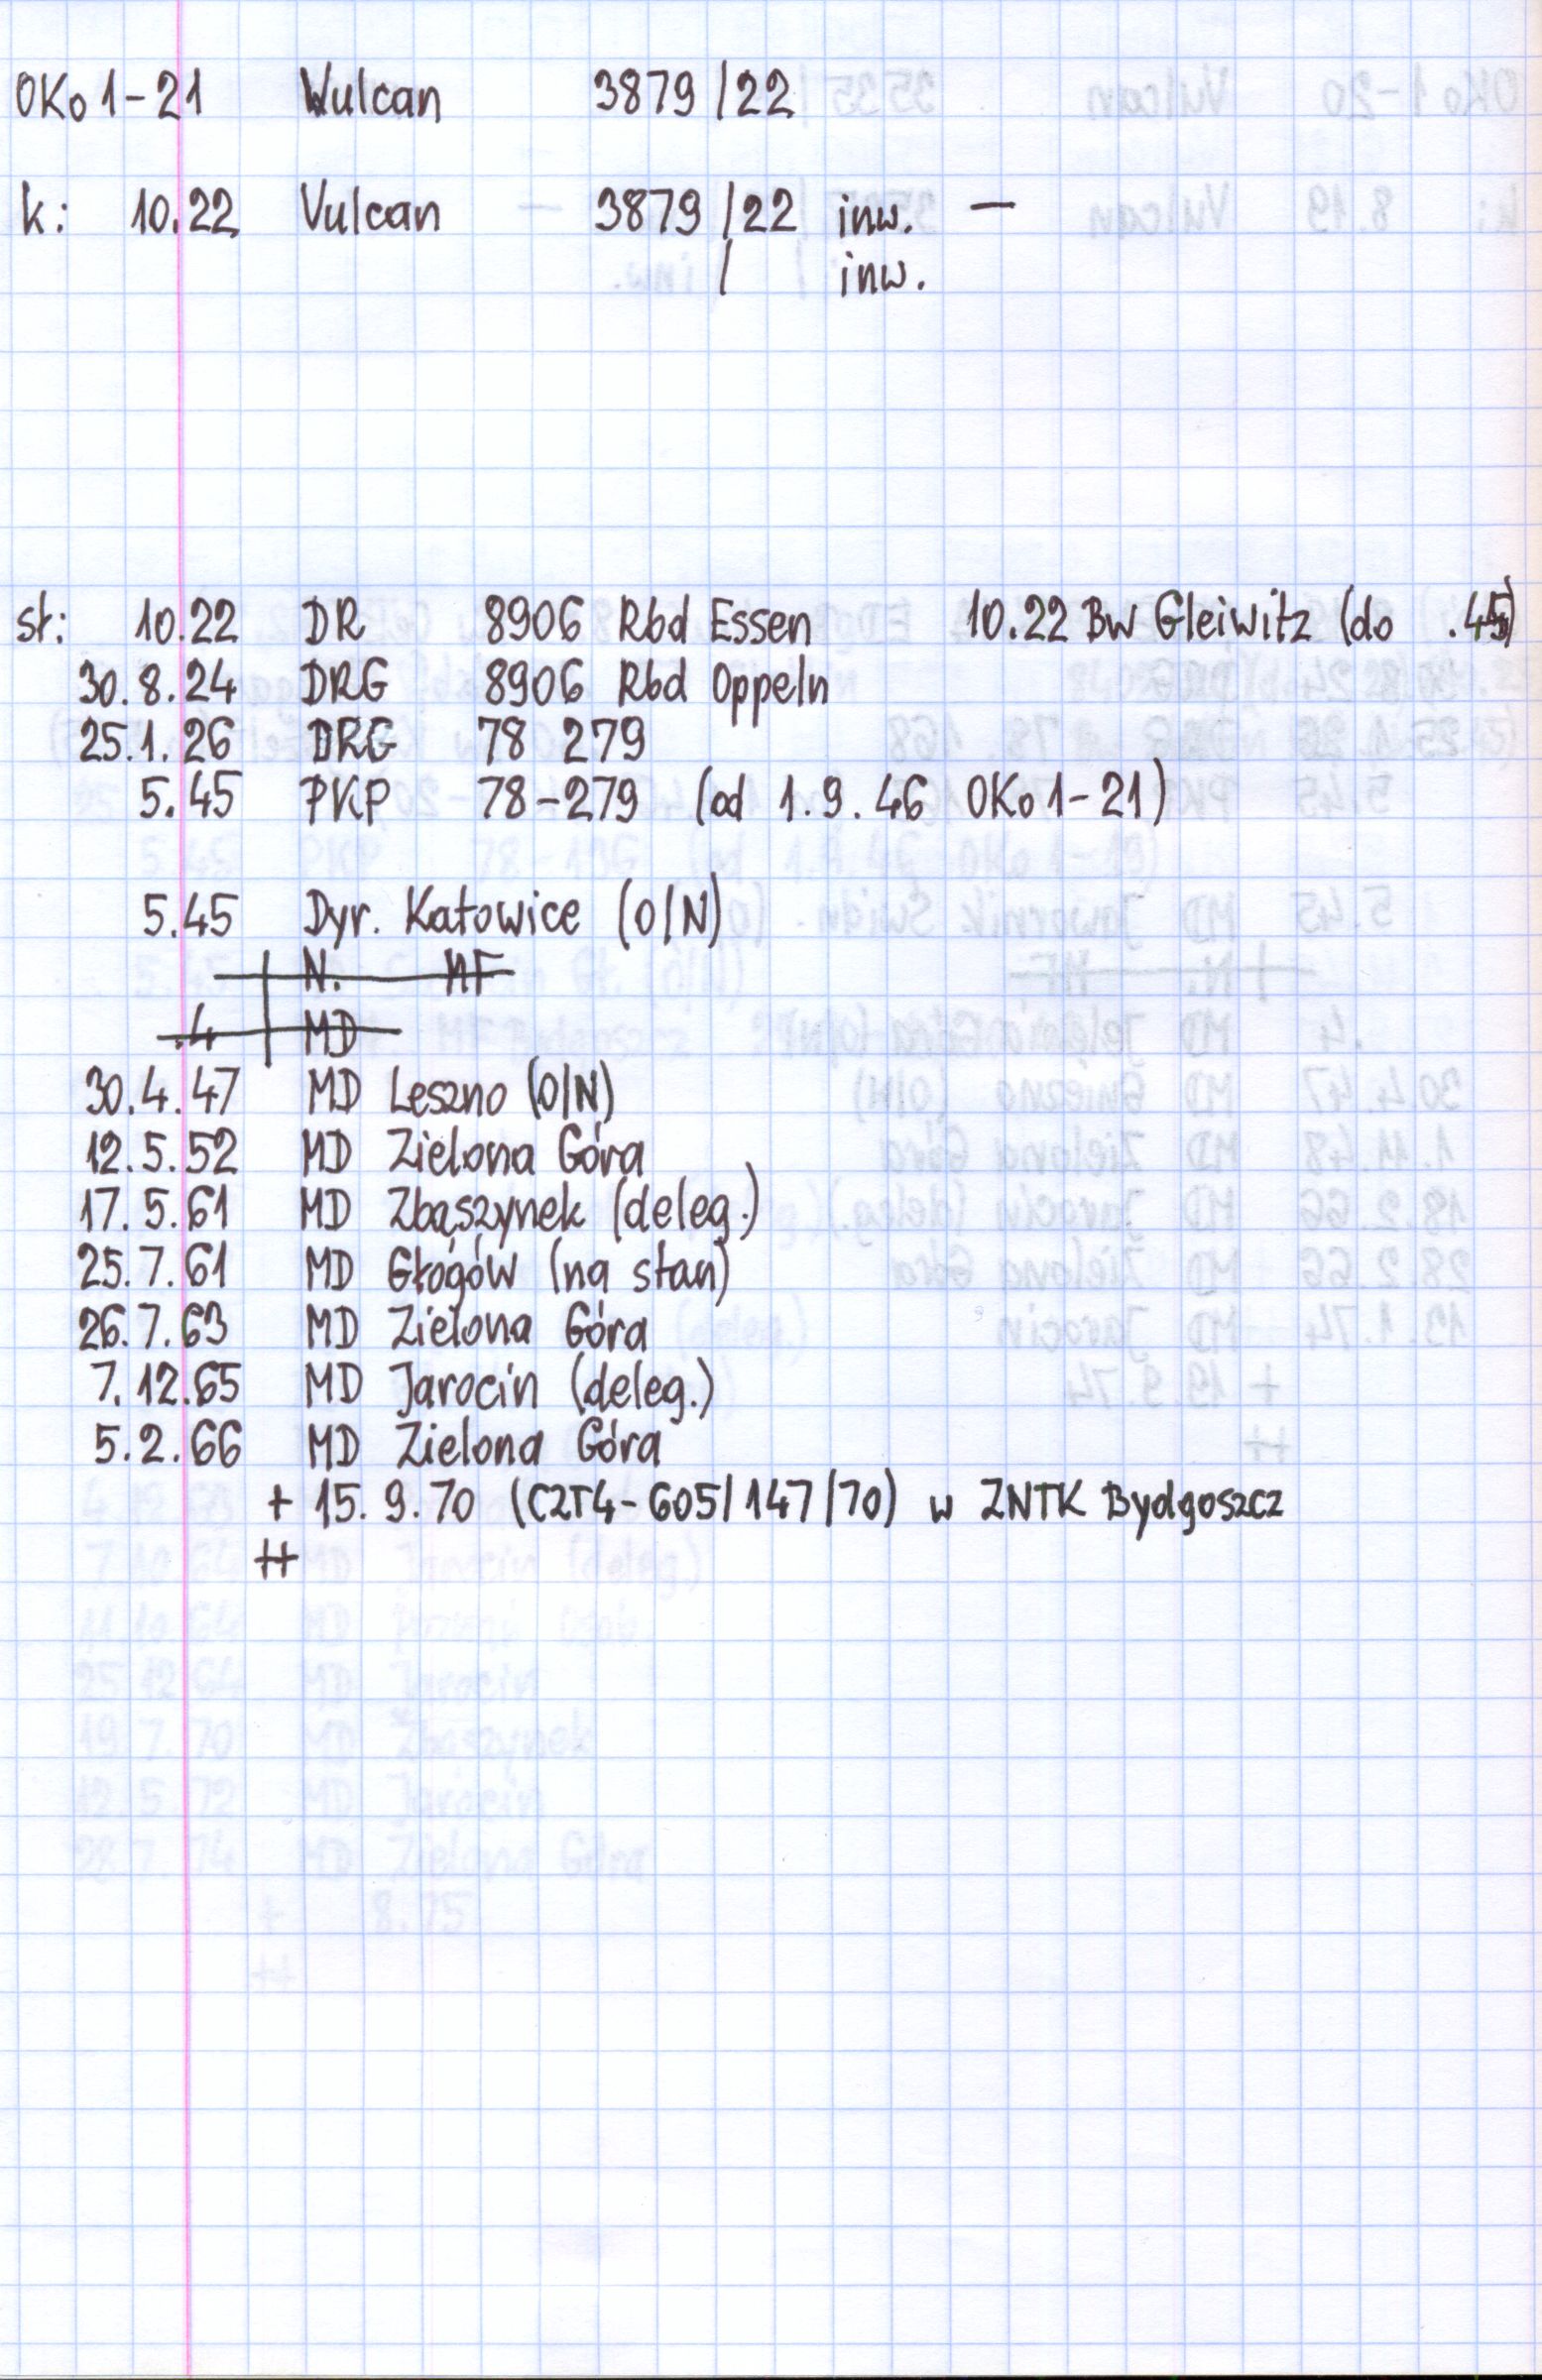 OKo1-21 Vulcan 3879/22
k: 10.22 Vulcan 3879/22 inw. —
/ inw.
st: 10.22 DR 8906 Rbd Essen 10.22 Bw Gleiwitz (do .45)
30.8.24 DRG 8906 Rbd Oppeln
25.1.26 DRG 78 279
5.45 PKP 78-279 (od 1.9.46 OKo1-21)
5.45 Dyr. Katowice (O/N)
N. NF
.4 MD
30.4.47 MD Leszno (O/N)
12.5.52 MD Zielona Góra
17.5.61 MD Zbąszynek (deleg.)
25.7.61 MD Głogów (na stan)
26.7.63 MD Zielona Góra
7.12.65 MD Jarocin (deleg.)
5.2.66 MD Zielona Góra
+ 15.9.70 (CZT4-605/147/70) w ZNTK Bydgoszcz
++